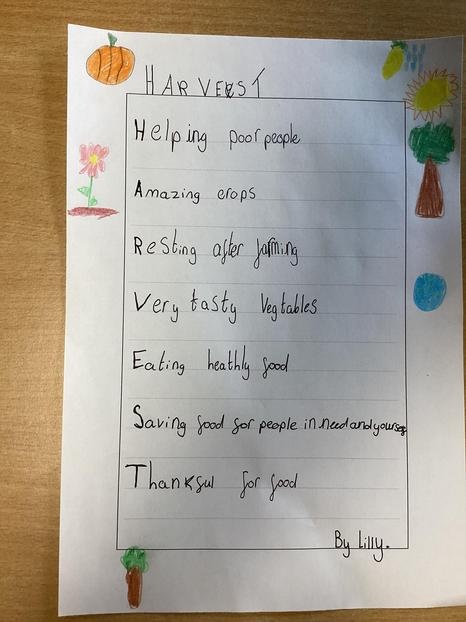 HARVEST
Helping poor people
Amazing crops
Resting after farming
Very tasty Vegtables
Eating heathly food
Saving food for people in need and yourself
Thankful for food
By Lilly.